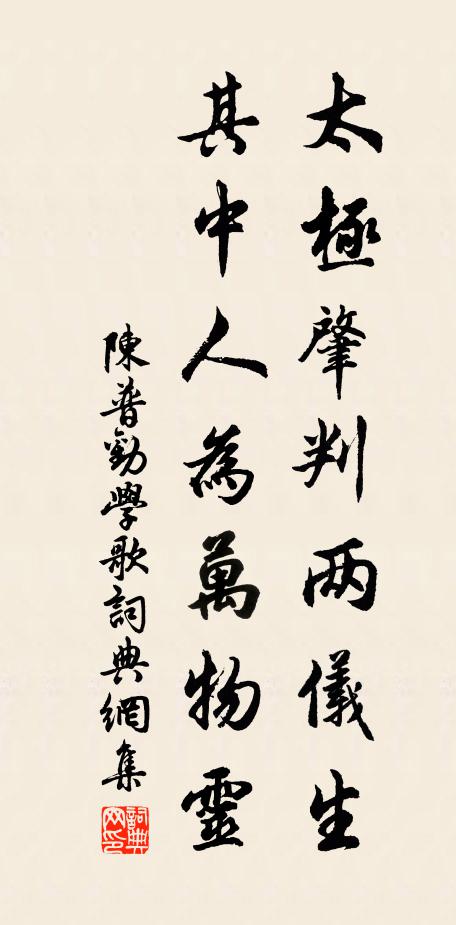 太極肇判两儀生
其中人為萬物靈
陳普勸學歌詞典網集
詞典
网印